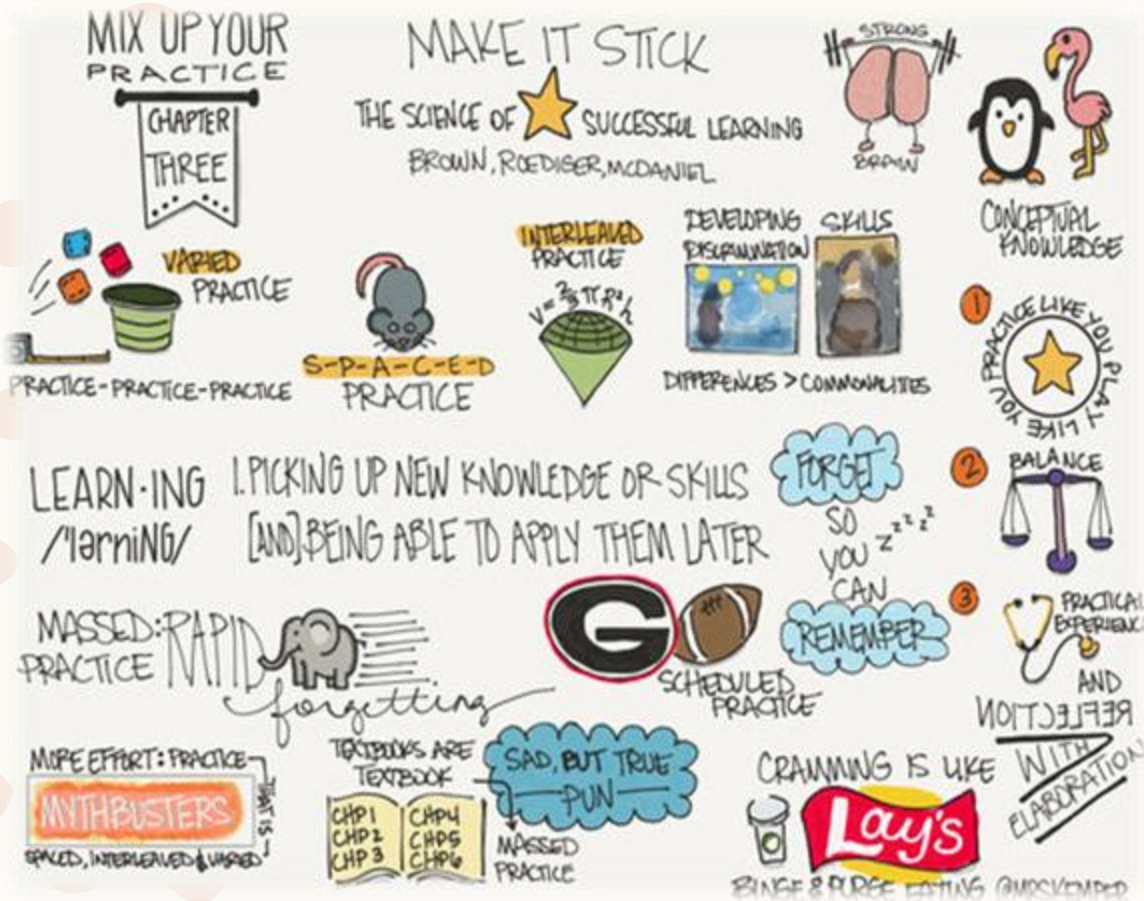 MIX UP YOUR
PRACTICE
CHAPTER
THREE
MAKE IT STICK
THE SCIENCE OF SUCCESSFUL LEARNING
BROWN, ROEDIGER, MCDANIEL
STRONG
BRAIN
CONCEPTUAL
KNOWLEDGE
VARIED
PRACTICE
PRACTICE-PRACTICE-PRACTICE
S-P-A-C-E-D
PRACTICE
INTERLEAVED
PRACTICE
V=⅔πR²h
DEVELOPING
DISCRIMINATION
SKILLS
DIFFERENCES > COMMONALITIES
1
PRACTICE LIKE YOU PLAY LIKE YOU
2
BALANCE
3
PRACTICAL
EXPERIENC
AND
REFLECTION
WITH
ELABORATION
LEARN·ING
/'lərniNG/
1. PICKING UP NEW KNOWLEDGE OR SKILLS
[AND] BEING ABLE TO APPLY THEM LATER
FORGET
SO
YOU
zzzzz
CAN
REMEMBER
MASSED:
PRACTICE
RAPID
forgetting
G
SCHEDULED
PRACTICE
MORE EFFORT: PRACTICE
THAT IS
MYTHBUSTERS
SPACED, INTERLEAVED & VARIED
TEXTBOOKS ARE
TEXTBOOK
CHP1
CHP2
CHP3
CHP4
CHP5
CHP6
MASSED
PRACTICE
SAD, BUT TRUE
PUN
CRAMMING IS LIKE
Lay's
BINGE & PURGE EATING @MRSKEMPER